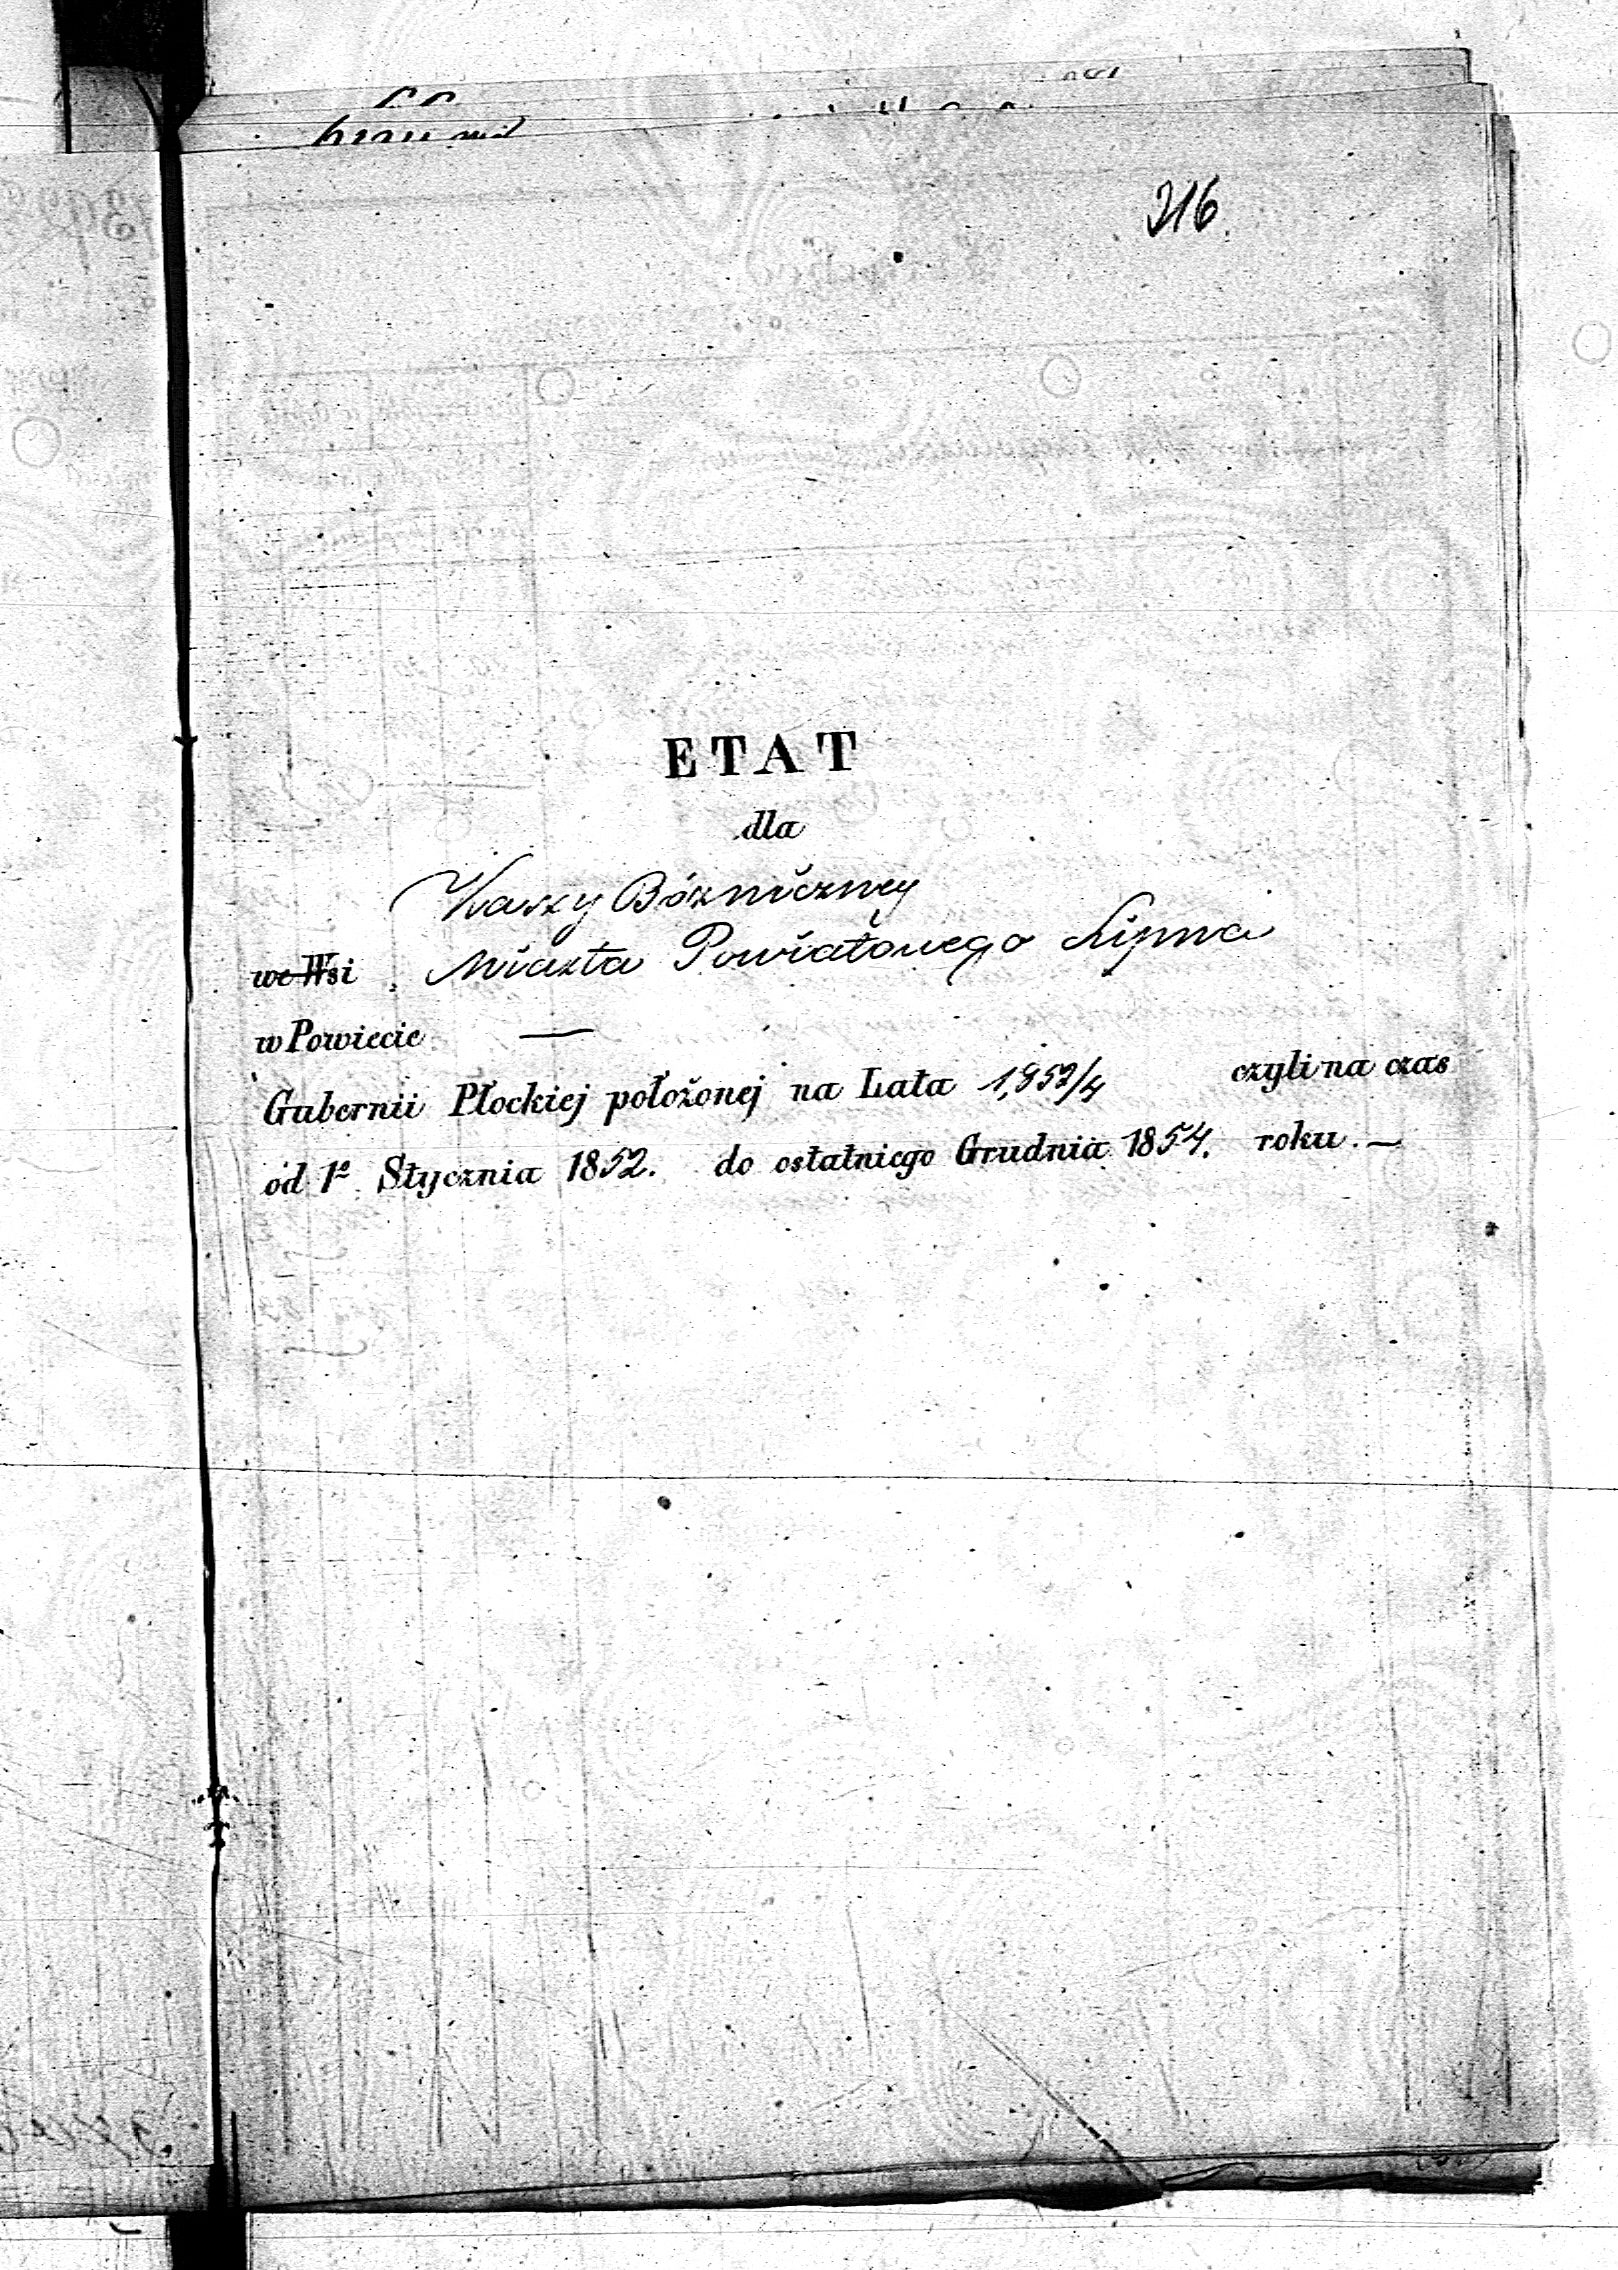 316.
ETAT
dla
Kassy Bóżniczney
we Wsi Miasta Powiatowego Lipna
w Powiecie —
Gubernii Płockiej położonej na Lata 1852/4 czyli na czas
od 1º Stycznia 1852. do ostatniego Grudnia 1854. roku. —